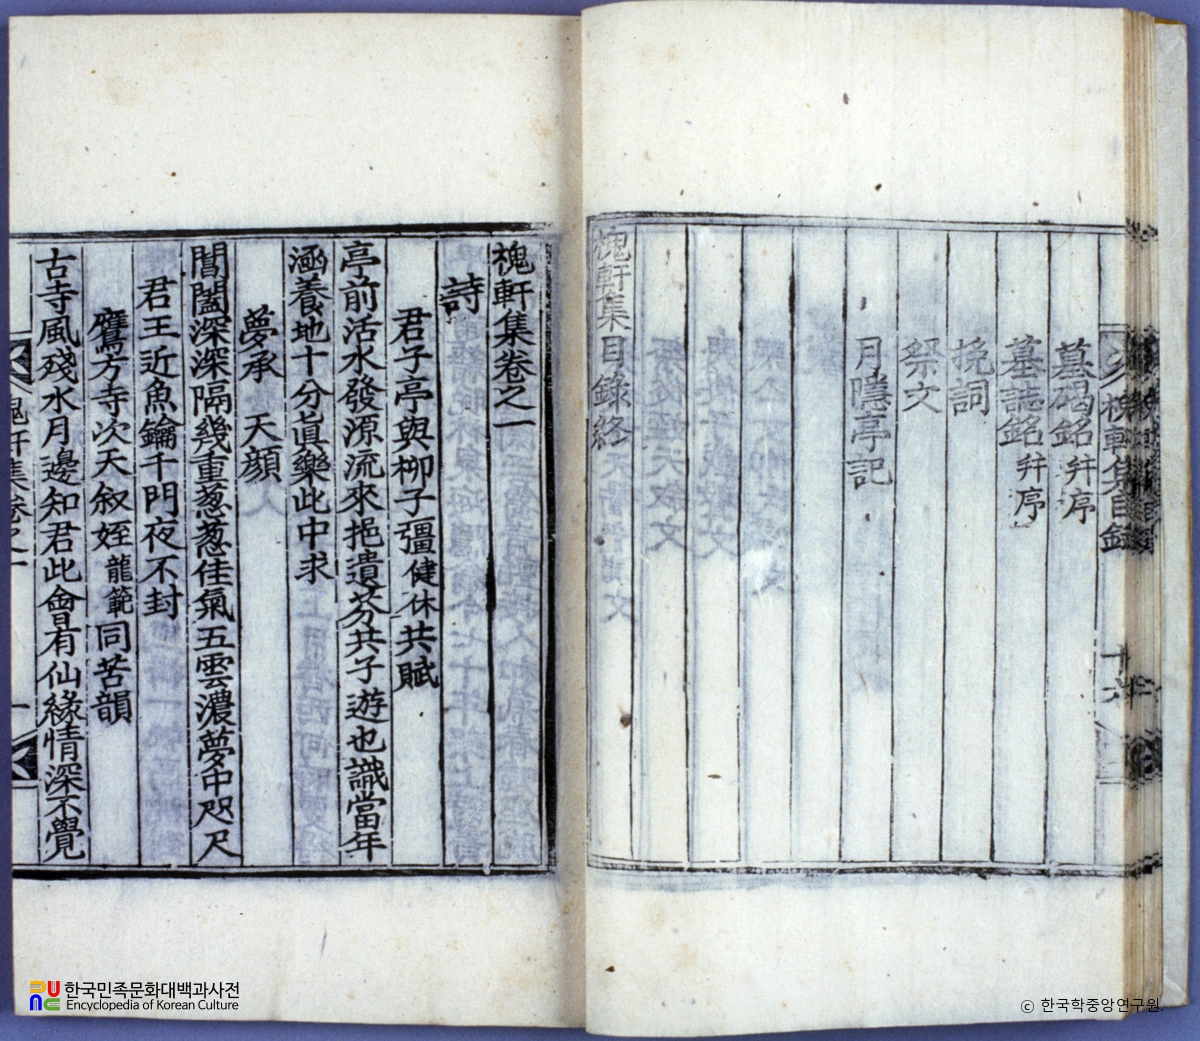 墓碣銘 幷序
墓誌銘 幷序
挽詞
祭文
月隱亭記
槐軒集目錄終
槐軒集目錄
十六
槐軒集卷之一
詩
君子亭與柳子彊健休共賦
亭前活水發源流來挹遺芬共子遊也識當年
涵養地十分眞樂此中求
夢承 天顔
閶闔深深隔幾重葱葱佳氣五雲濃夢中咫尺
君王近魚鑰千門夜不封
鷹方寺次天叙姪龍範同苦韻
古寺風殘水月邊知君此會有仙緣情深不覺
槐軒集卷之一
一
한국민족문화대백과사전
Encyclopedia of Korean Culture
ⓒ 한국학중앙연구원.